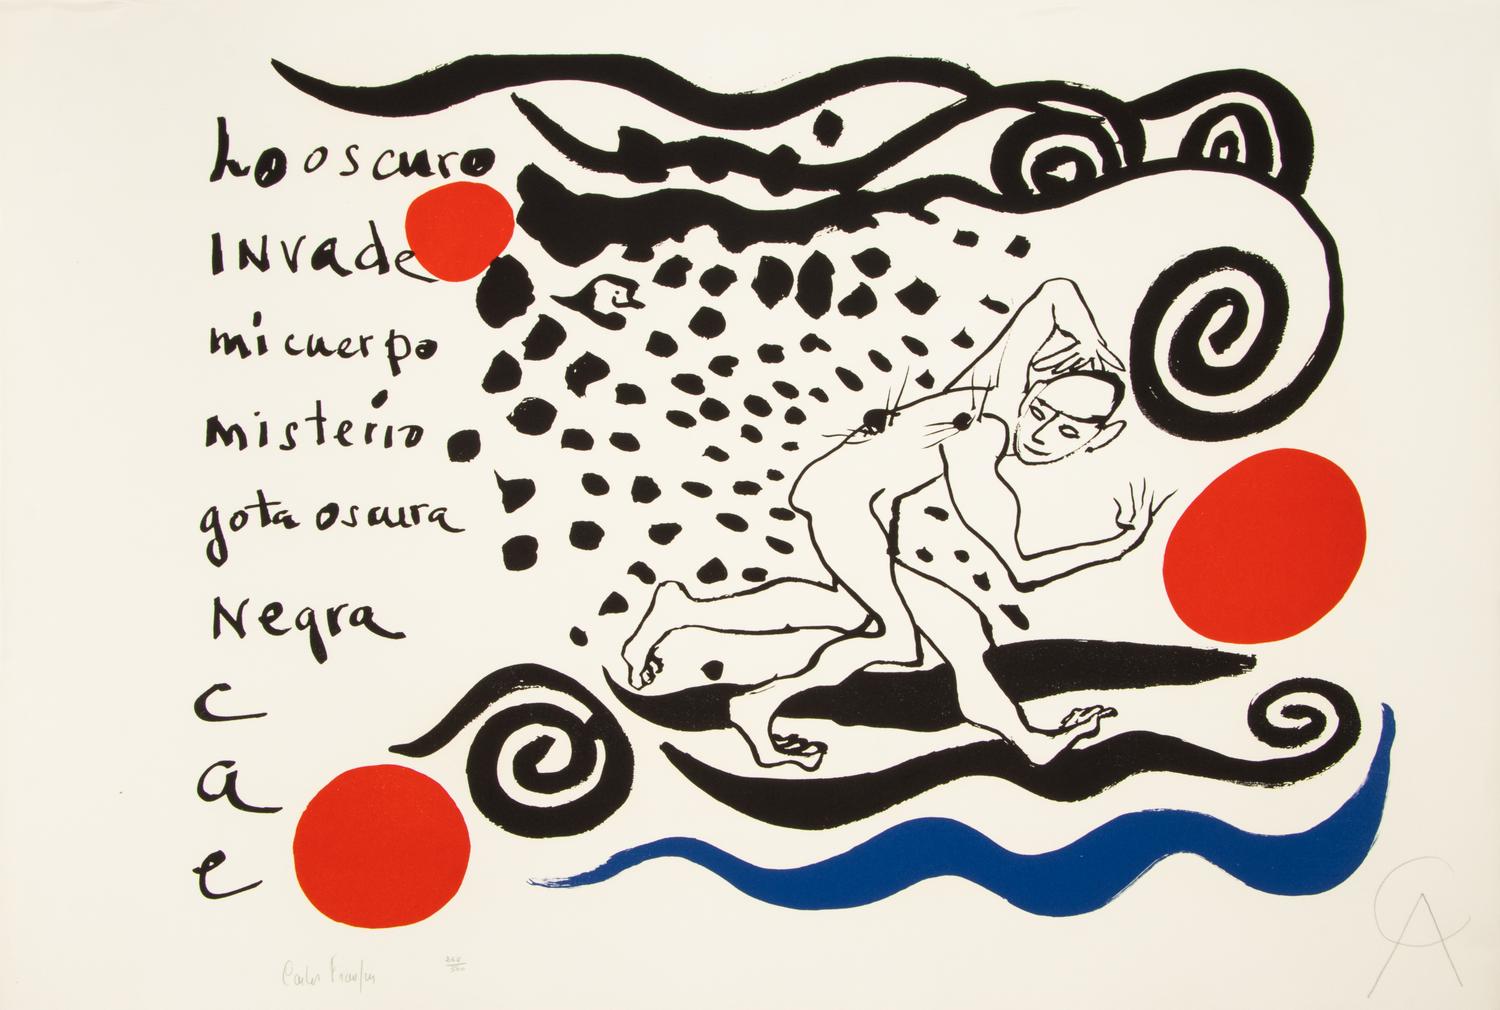 Lo oscuro
INvade
mi cuerpo
misterio
gota oscura
Negra
c
a
e
Carlos Franqui
CA